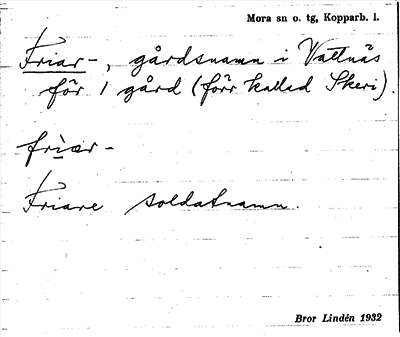 Mora sn o. tg, Kopparb. l.
Friar-, gårdsnamn i Vattnäs
för 1 gård (förr kallad Skeri).
friar-
Friare soldatnamn.
Bror Lindén 1932